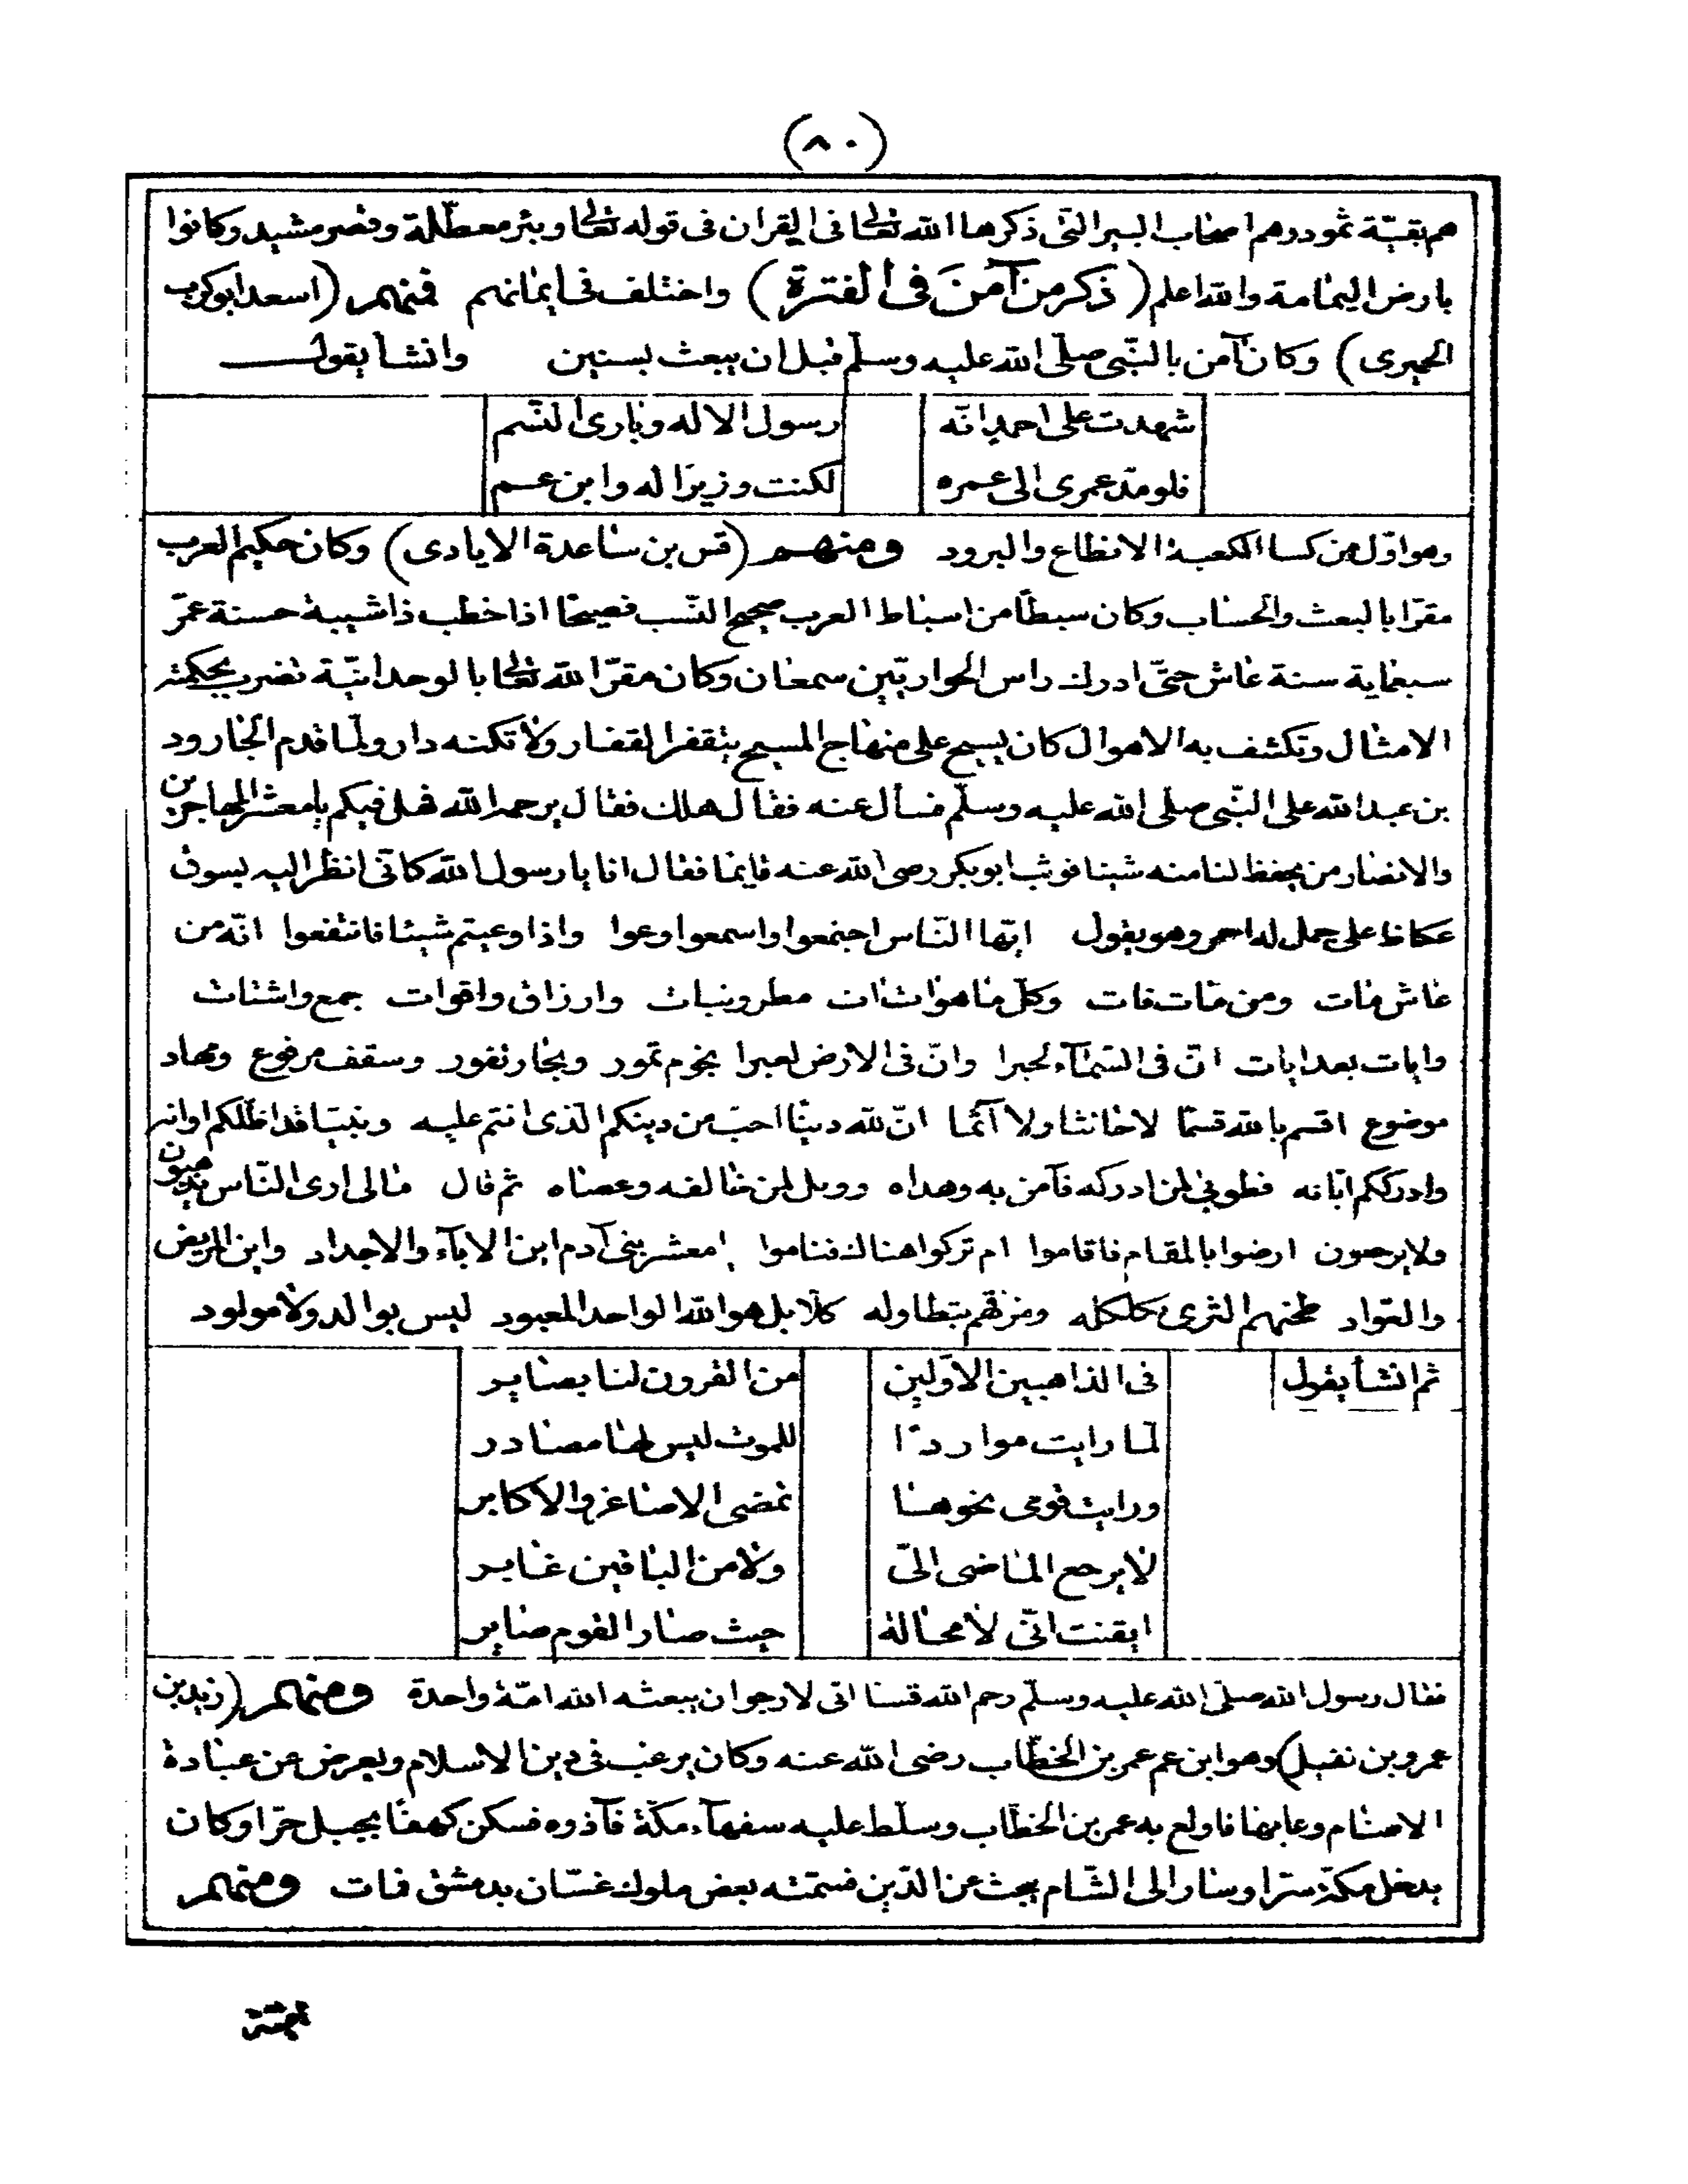 (٨٠)
هم بقيّة ثمود وهم اصحاب البير التى ذكرها الله تعالى فى القران فى قوله تعالى وبئر معطّلة وقصر مشيد وكانوا
بارض اليمامة والله اعلم (ذكر من آمن فى الفترة) واختلف فى ايمانهم فمنهم (اسعد ابو كرب
الحميرى) وكان آمن بالنّبى صلّى الله عليه وسلّم قبل ان يبعث بسنين وانشأ يقول
شهدت على احمد انّه رسول الاله وبارئ النسّم
فلو مدّ عمرى الى عمره لكنت وزيرا له وابن عم
وهو اوّل من كسا الكعبة الانطاع والبرود ومنهم (قس بن ساعدة الايادى) وكان حكيم العرب
مقرّا بالبعث والحساب وكان سبطًا من اسباط العرب صحيح النّسب فصيحًا اذا خطب ذا شيبة حسنة عمّر
سبعماية سنة عاش حتّى ادرك راس الحواريّين سمعان وكان مقرّا لله تعالى بالوحدانيّة تضرب بحكمته
الامثال وتكشف به الاهوال كان يسيح على منهاج المسيح يتقفر القفار ولا تكنه دار ولمّا قدم الجارود
بن عبد الله على النّبى صلى الله عليه وسلّم فسأل عنه فقال هلك فقال يرحمه الله فهل فيكم يا معشر المهاجرين
والانصار من يحفظ لنا منه شيئا فوثب ابو بكر رضى الله عنه قايما فقال انا يا رسول الله كاتّى انظر اليه بسوق
عكاظ على جمل له احمر وهو يقول ايّها النّاس اجتمعوا واسمعوا وعوا واذا وعيتم شيئا فانتفعوا انّه من
عاش مات ومن مات فات وكلّ ما هوات ات مطر ونبات وارزاق واقوات جمع واشتات
وايات بعد ايات انّ فى السّمآء لخبرا وانّ فى الارض لعبرا نجوم تمور وبحار تفور وسقف مرفوع ومهاد
موضوع اقسم بالله قسمًا لا حانثا ولا آثما انّ لله دينًا احبّ من دينكم الّذى انتم عليه ونبيّا قد اظلّكم اوانه
وادرككم ابّانه فطوبى لمن ادركه فآمن به وهداه وويل لمن خالفه وعصاه ثم قال مالى ارى النّاس يذهبون
ولا يرجعون ارضوا بالمقام فاقاموا ام تركوا هناك فناموا يا معشر بنى آدم اين الابآء والاجداد واين المريض
والعوّاد طحنهم الثرى بكلكله ومزقهم بتطاوله كلّا بل هو الله الواحد المعبود ليس بوالد ولا مولود
ثم انشأ يقول فى الذاهبين الاوّلين من القرون لنا بصاير
لمّا رايت مواردًا للموت ليس لها مصادر
ورايت قومى نحوها تمضى الاصاغر والاكابر
لا يرجع الماضى الىّ ولا من الباقين غابر
ايقنت انّى لا محالة حيث صار القوم صاير
فقال رسول الله صلّى الله عليه وسلّم رحم الله قسا انى لارجو ان يبعثه الله امّة واحدة ومنهم (زيد بن
عمرو بن نفيل) وهو ابن عم عمر بن الخطّاب رضى الله عنه وكان يرغب فى دين الاسلام ويعرض عن عبادة
الاصنام وعابها فاولع به عمر بن الخطّاب وسلّط عليه سفهآء مكّة فآذوه فسكن كهفًا بجبل حرّا وكان
يدخل مكّة سرّا وسار الى الشّام يبحث عن الدّين فسمّته بعض ملوك غسّان بدمشق فمات ومنهم